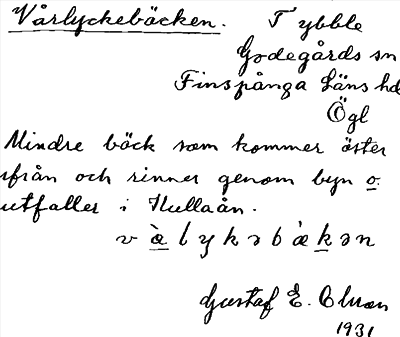 Vårlyckebäcken. Tybble
Godegårds sn
Finspånga Läns hd
Ögl
Mindre bäck som kommer öster
ifrån och rinner genom byn o.
utfaller i Hullaån.
v æ̀ l y k ə b ǽ k ə n
Gustaf E. Olsson
1931